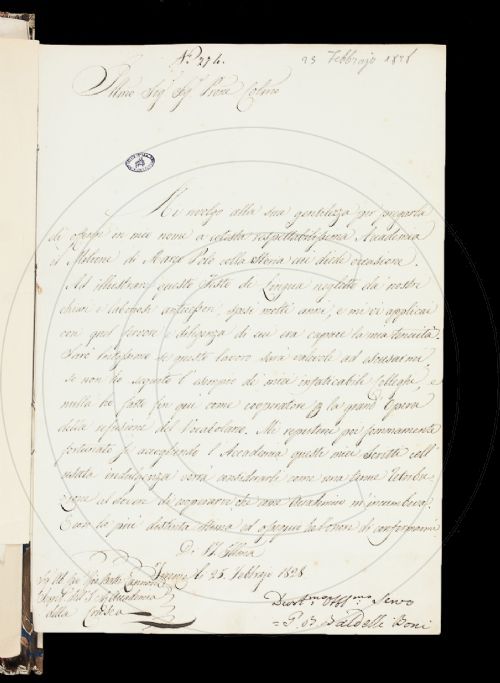 N.° 274.
23 Febbrajo 1828
Illmo Sig.r Sig.r Prone Colmo
Mi rivolgo alla sua gentilezza per pregarla
di offrire in mio nome a cotesta rispettabilissima Accademia
il Milione di Marco Polo colla Storia cui diede occasione.
Ad illustrare questo Testo di Lingua negletto da nostri
chiari e laboriosi antecessori, spesi molti anni, e mi vi applicai
con quel fervore e diligenza di cui era capace la mia tenuità.
Sarò fortissimo se questo lavoro sarà valevole ad scusarmi
se non ho seguito l'esempio di miei infaticabili Colleghi, e
nulla ho fatto fin qui come cooperatore p la grand'Opera
della rifusione del Vocabolario. Mi reputerei poi sommamente
fortunato se accogliendo l'Accademia questi miei scritti coll'
usata indulgenza vorrà considerarli come una tenue retribu-
zione al dovere di cooperare che come Accademico m'incombeva.
E con la più distinta stima ed ossequio ho l'onore di confermarmi
Di V.S. Illma
Firenze li 23. Febbrajo 1828
Accademia
della Crusca
Devot.mo Obb.mo Servo
= G. B. Baldelli Boni